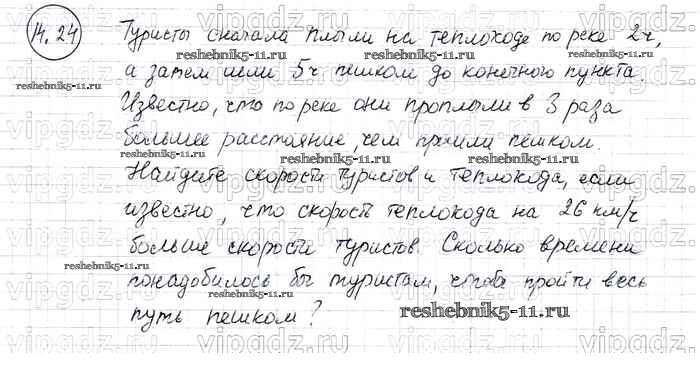 14.24 Туристы сначала плыли на теплоходе по реке 2ч,
reshebnik5-11.ru
reshebnik5-11.ru
а затем шли 5ч пешком до конечного пункта
reshebnik5-11.ru
Известно, что по реке они проплыли в 3 раза
reshebnik5-11.ru
большее расстояние, чем прошли пешком.
reshebnik5-11.ru
reshebnik5-11.ru
Найдите скорости туристов и теплохода, если
reshebnik5-11.ru
известно, что скорость теплохода на 26 км/ч
больше скорости туристов. Сколько времени
reshebnik5-11.ru
reshebnik5-11.ru
понадобилось бы туристам, чтобы пройти весь
reshebnik5-11.ru
путь пешком?
reshebnik5-11.ru